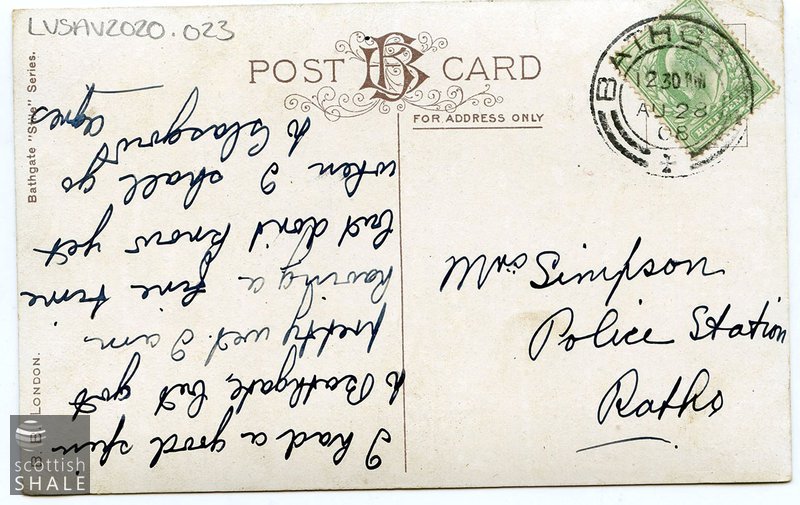 LVSAV2020.023
POST CARD
FOR ADDRESS ONLY
BATHGATE
12.30 PM
AU 28
08
Bathgate "Sine" Series.
B. B. LONDON.
I had a good spin
to Bathgate, but got
pretty wet. I am
having a fine time
but don't know yet
when I shall go
to Glasgow
Agnes
Mrs Simpson
Police Station
Ratho
scottish
SHALE